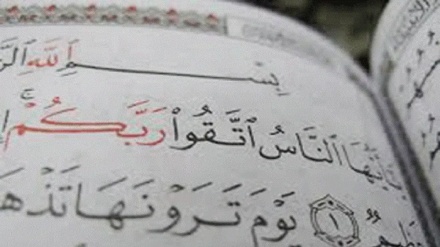 بِسْمِ ٱللَّهِ
يَٰٓأَيُّهَا ٱلنَّاسُ ٱتَّقُوا۟ رَبَّكُمْ ۚ
١ يَوْمَ تَرَوْنَهَا تَذْهَ